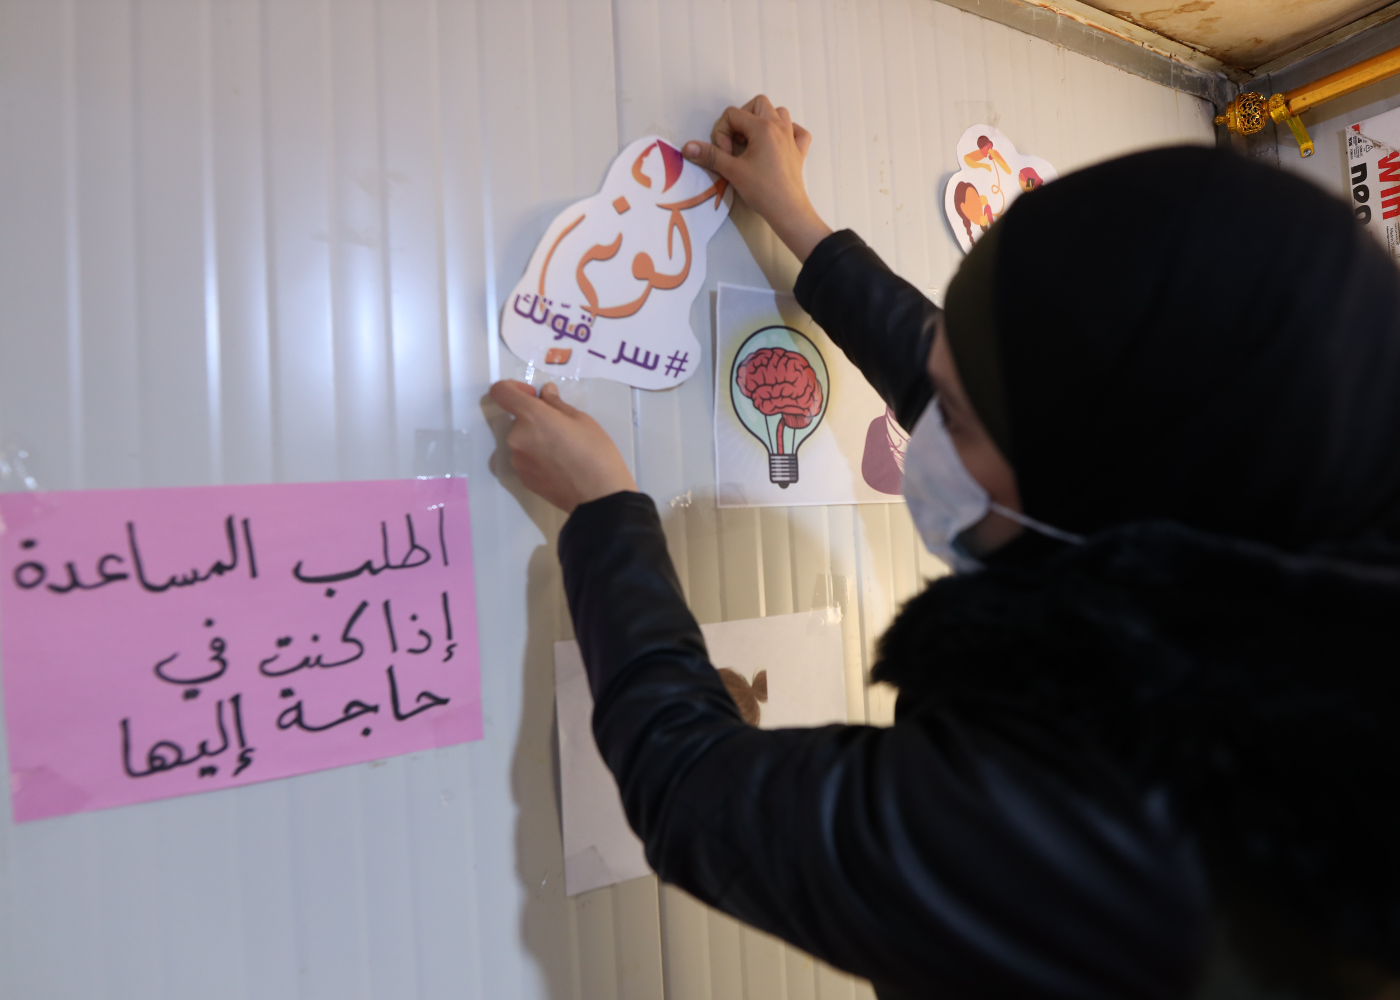 كوني
#سر_قوتك
اطلب المساعدة
إذا كنت في
حاجة إليها
win